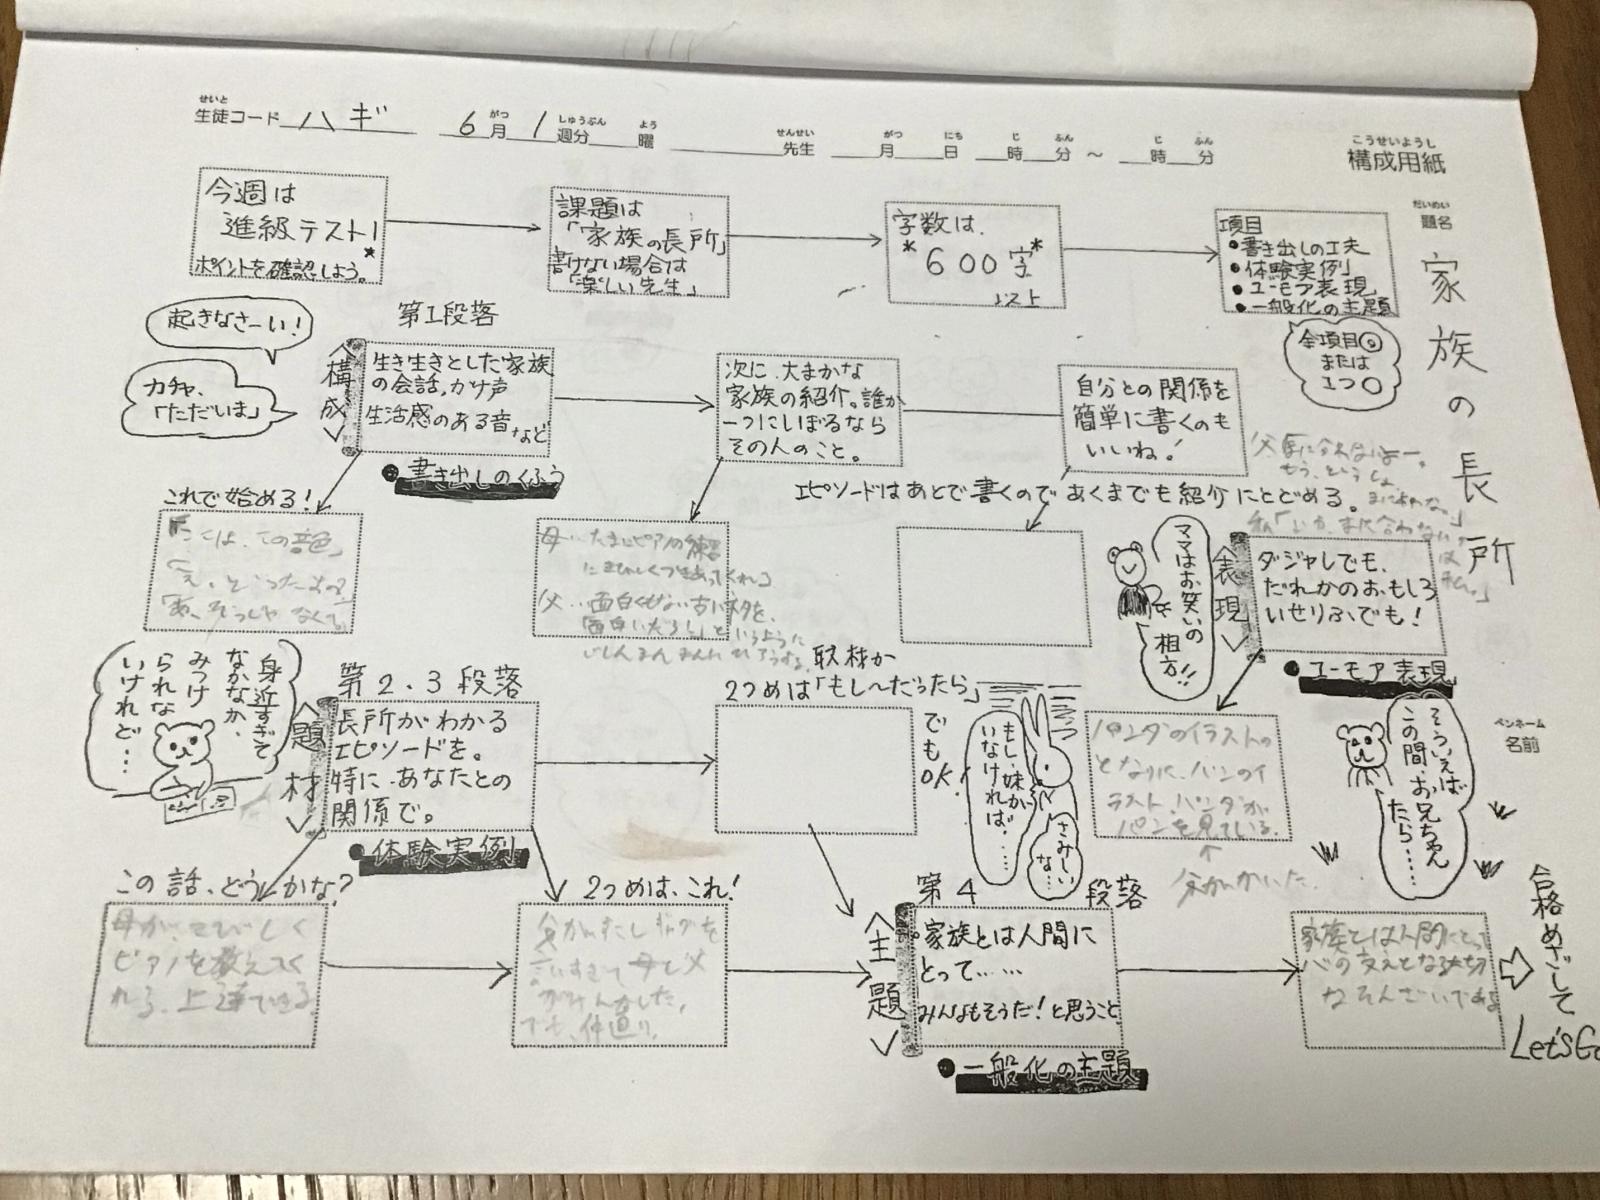 せいと
生徒コード ハギ 6月 1週分 曜 先生 月 日 時 分 ～ 時 分
がつ しゅうぶん よう せんせい がつ にち じ ふん じ ふん
こうせいようし
構成用紙
だいめい
題名
家族の長所
今週は
進級テスト!
ポイントを確認しよう。
課題は
「家族の長所」
書けない場合は
「楽しい先生」
字数は、
*600字*
項目
●書き出しの工夫
●体験実例
●ユーモア表現
●一般化の主題
全項目◎
または
1つ○
起きなさーい!
カチャ、
「ただいま」
第1段落
<構成>
生き生きとした家族
の会話、かけ声
生活感のある音など
●書き出しのくふう
次に、大まかな
家族の紹介。誰か
一つにしぼるなら
その人のこと。
自分との関係を
簡単に書くのも
いいね!
エピソードはあとで書くので、あくまでも紹介にとどめる。
これで始める!
母…たまにピアノの練習
にきびしくつきあってくれる
ママはお笑いの
相方!!
<表現>
ダジャレでも、
だれかのおもしろ
いせりふでも!
●ユーモア表現
身近すぎて
なかなか、
みつけ
られな
いけれど…
第2.3段落
<題材>
長所がわかる
エピソードを。
特に、あなたとの
関係で。
●体験実例
取材か
2つめは「もし〜だったら」
でもOK!
もし、妹が
いなければ……
さみしい
な…
パンダのイラストの
となりに、パンのイ
ラスト、パンダが
パンを見ている。
そういえば
この間、お兄ちゃん
たら……
ペンネーム
名前
この話、どうかな?
母が、きびしく
ピアノを教えてく
れる。上達できる
2つめは、これ!
でも、仲直り。
第4段落
<主題>
家族とは人間に
とって……
みんなもそうだ!と思うこと
●一般化の主題
家族とは人間にとって
心の支えとなる大切
なそんざいである
合格めざして
Let's Go